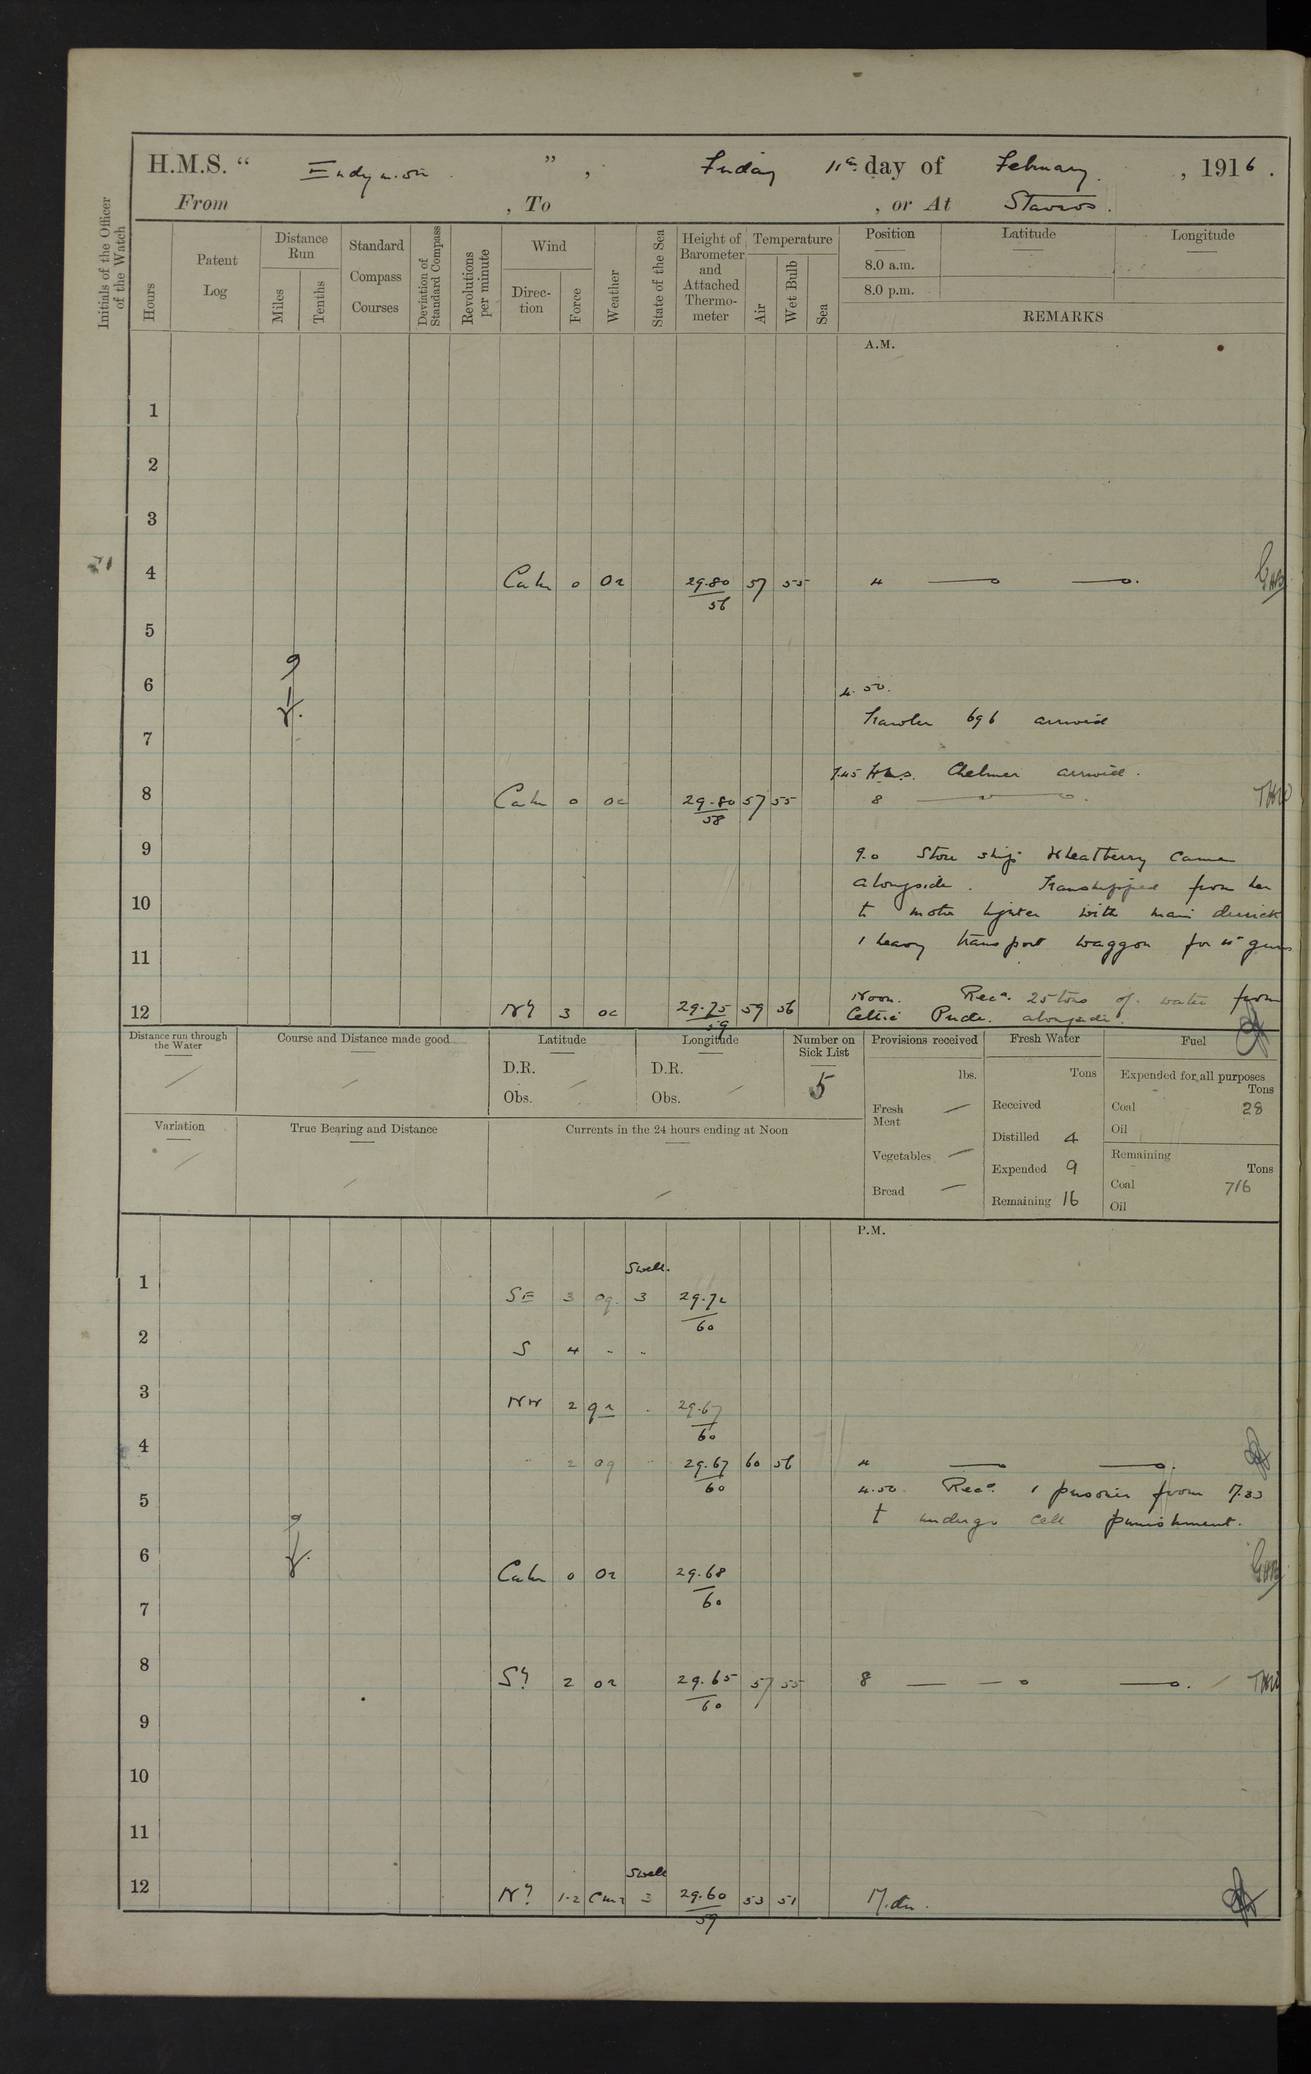 H.M.S. “ Endymion ” , Friday 11th day of February , 1916 .
From , To , or At Stavros .
Initials of the Officer of the Watch
Hours
Patent Log
Distance Run
Miles
Tenths
Standard Compass Courses
Deviation of Standard Compass
Revolutions per minute
Wind
Direction
Force
Weather
State of the Sea
Height of Barometer and Attached Thermometer
Temperature
Air
Wet Bulb
Sea
Position Latitude Longitude
8.0 a.m.
8.0 p.m.
REMARKS
A.M.
1
2
3
4 Calm 0 Or 29.80 57 55 4
56
5
6 4.50.
Trawler 696 arrived
7
7.45 H.M.S. Chelmer arrived.
8 Calm 0 oc 29.80 57 55 8
58
9 9.0 Store ship Wheatberry came
alongside. Transhipped from her
10 to motor lighter with main derrick
11 1 heavy transport waggon for 15" guns
12 Nly 3 oc 29.75 59 56 Noon. Recd. 25 tons of water from
59 Celtic Pride alongside.
Distance run through the Water
Course and Distance made good
Latitude
D.R.
Obs.
Longitude
D.R.
Obs.
Number on Sick List
5
Variation
True Bearing and Distance
Currents in the 24 hours ending at Noon
Provisions received
lbs.
Fresh Meat
Vegetables
Bread
Fresh Water
Tons
Received
Distilled 4
Expended 9
Remaining 16
Fuel
Expended for all purposes
Tons
Coal 28
Oil
Remaining
Tons
Coal 716
Oil
P.M.
Swell.
1 SE 3 og. 3 29.72
60
2 S 4 " "
3 NW 2 qr 29.67
60
4 " 2 og " 29.67 60 56 4
60
4.50 Recd. 1 prisoner from M.33
5 to undergo cell punishment.
6 Calm 0 Or 29.68
60
7
8 Sly 2 or 29.65 57 55 8
60
9
10
11
Swell
12 Nly 1-2 3 29.60 53 51 M.dn.
59